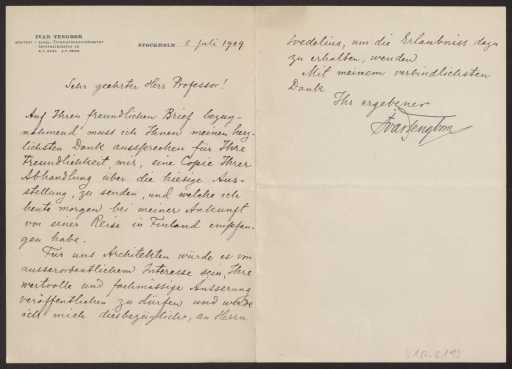 IVAR TENGBOM
STOCKHOLM 8 juli 1909
Sehr geehrter Herr Professor!
Auf Ihren freundlichen Brief bezug-
nehmend muss ich Ihnen meinen herz-
lichsten Dank aussprechen für Ihre
Freundlichkeit mir, eine Copie Ihrer
Abhandlung über die hiesige Aus-
stellung, zu senden, und welche ich
heute morgen bei meiner Ankunft
von einer Reise in Finland empfan-
gen habe.
Für uns Architekten würde es von
ausserordentlichem Interesse sein, Ihre
wertvolle und fachmässige Äusserung
veröffentlichen zu dürfen und werde
ich mich diesbezüglich, an Herrn
Svedelius, um die Erlaubniss dazu
zu erhalten, wenden
Mit meinem verbindlichsten
Dank
Ihr ergebener
Ivar Tengbom